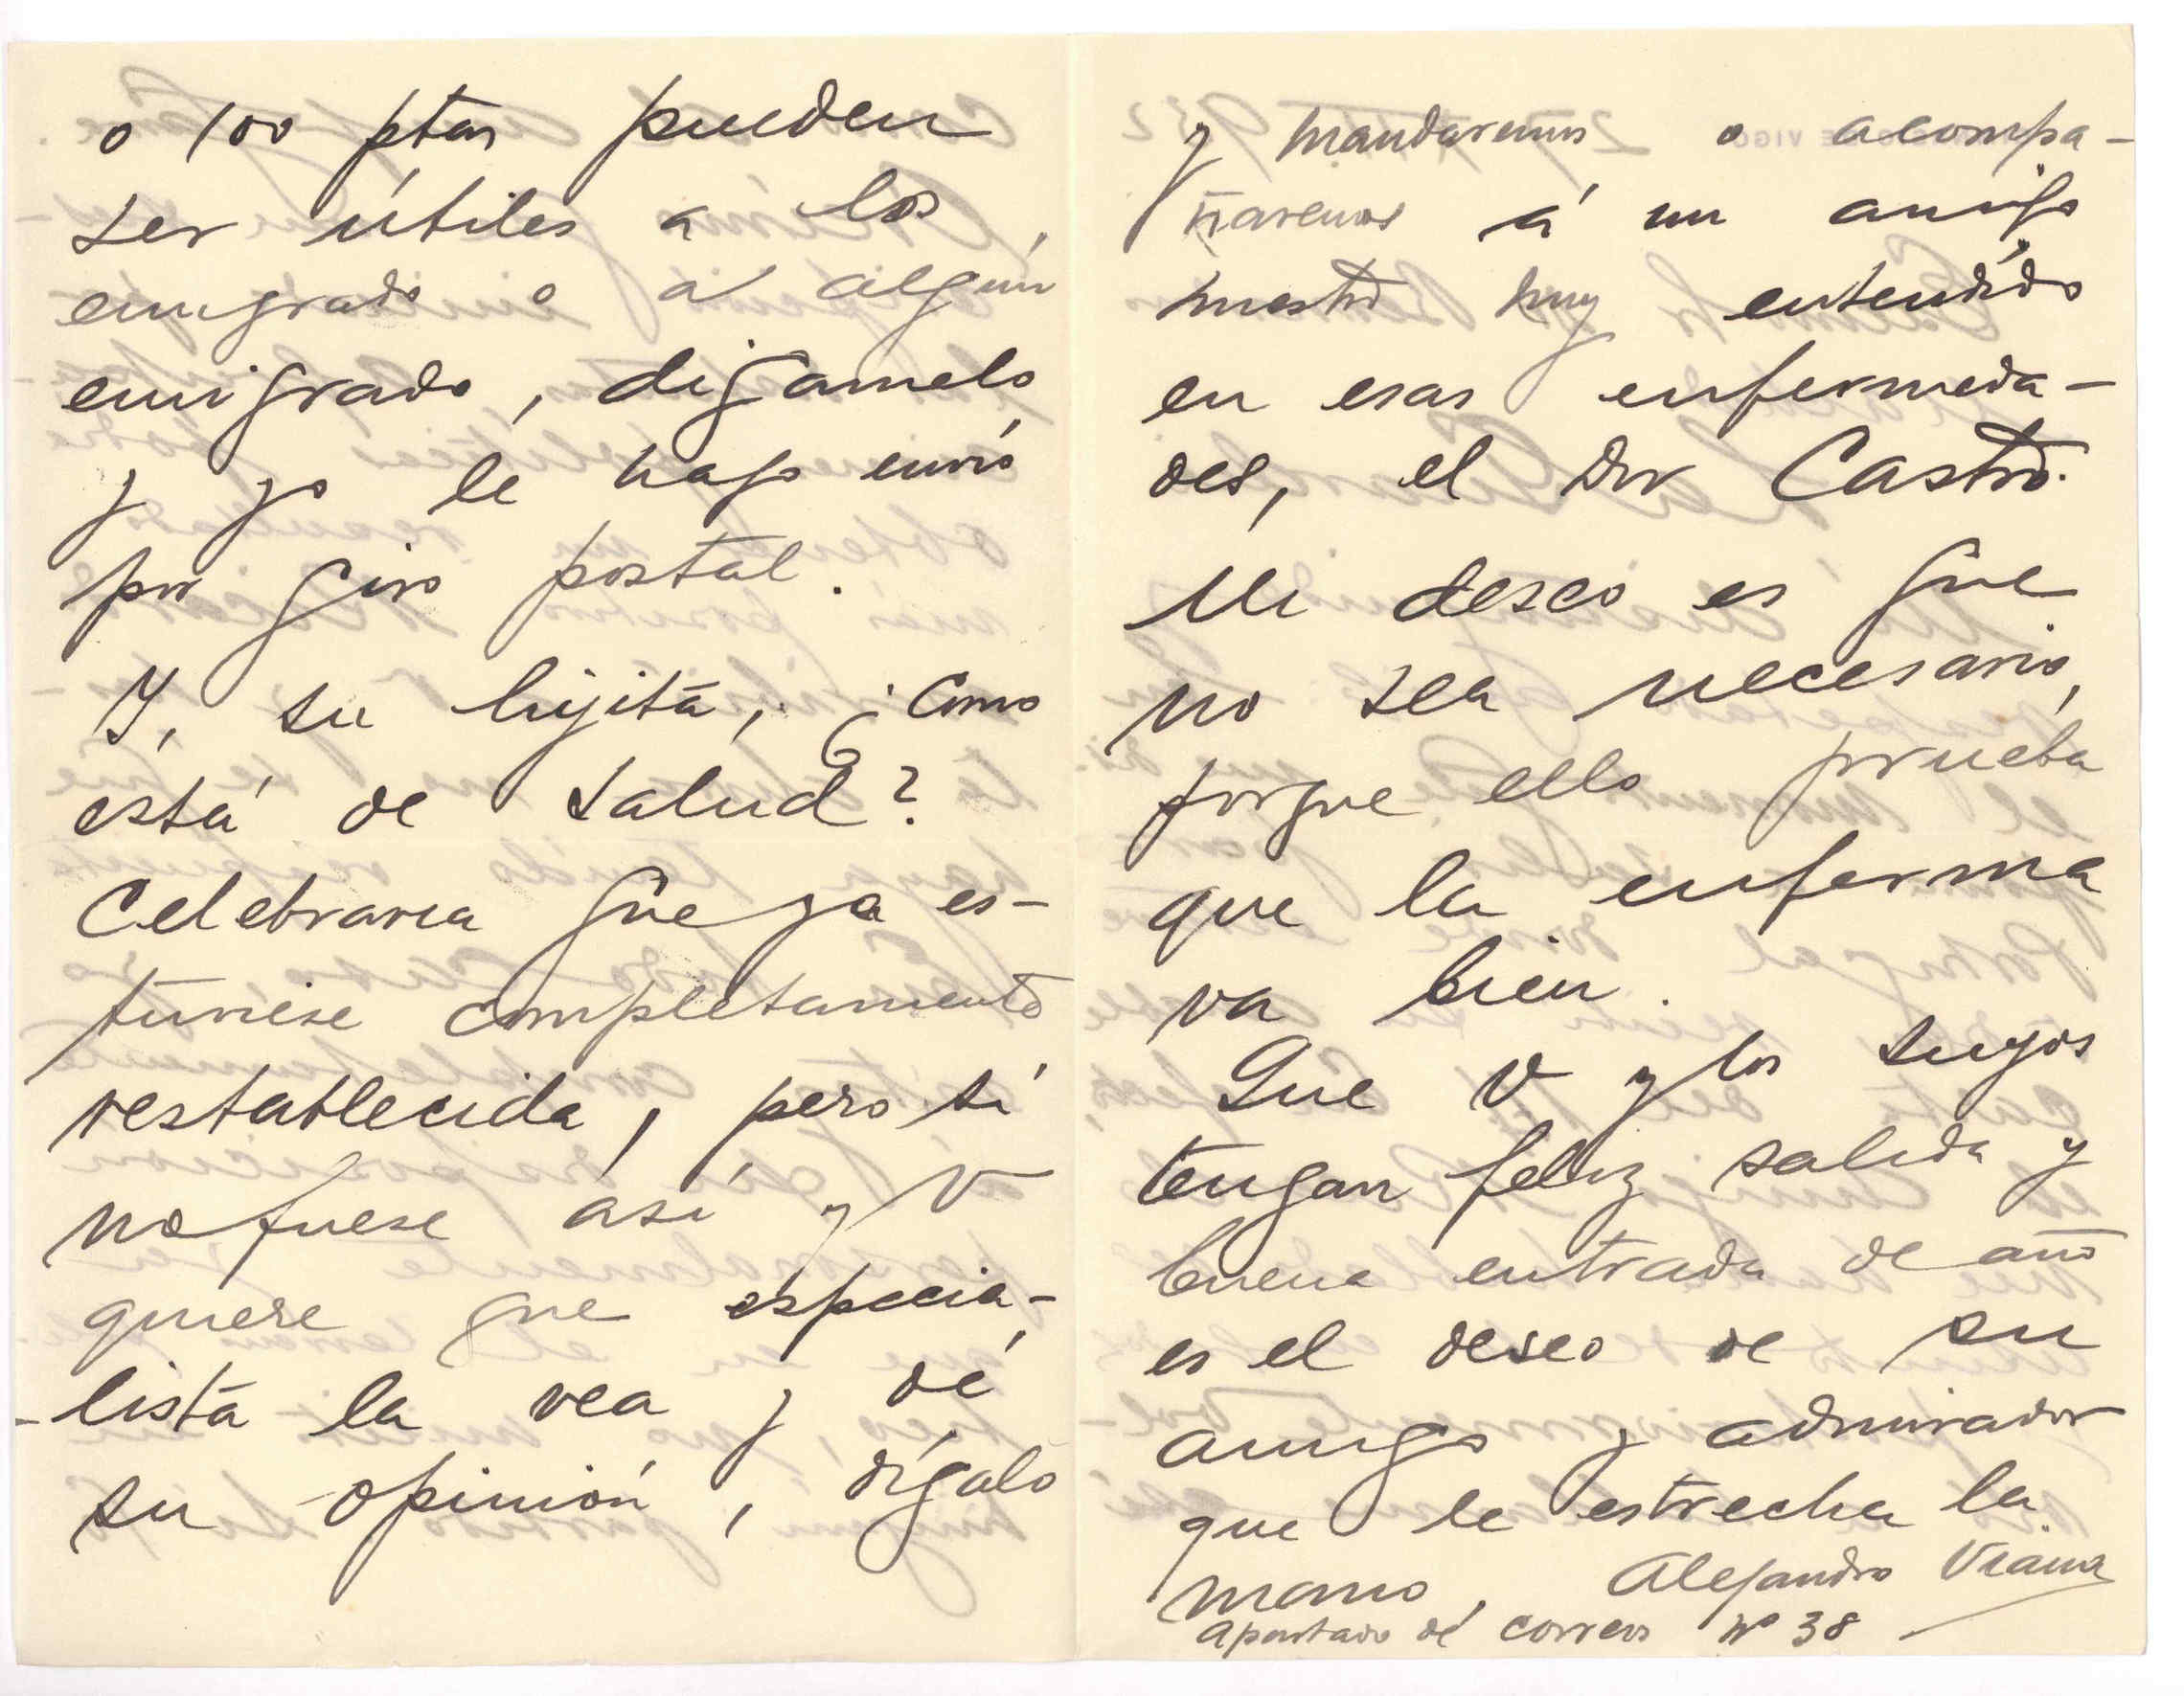 o 100 ptas pueden
ser útiles a los
emigrado o a algún
emigrado, digamelo,
y yo le hago envío
por giro postal.
Y, su hijita, ¿Como
está de salud?
Celebraria que ya es-
tuviese completamente
restablecida, pero si
no fuese así y V
quiere que especia-
-lista la vea y dé
su opinión, dígalo
y mandaremos o acompa-
ñaremos á un amigo
nuestro muy entendido
en esas enfermeda-
des, el Dor Castro.
Mi deseo es que
no sea necesario,
porque ello prueba
que la enferma
va bien.
Que V y los suyos
tengan feliz salida y
buena entrada de año
es el deseo de su
amigo y admirador
que le estrecha la
mano, Alejandro Viana
Apartado de correos nº 38